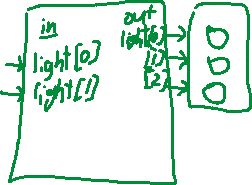 in
light[0]
light[1]
out
light[0]
[1]
[2]